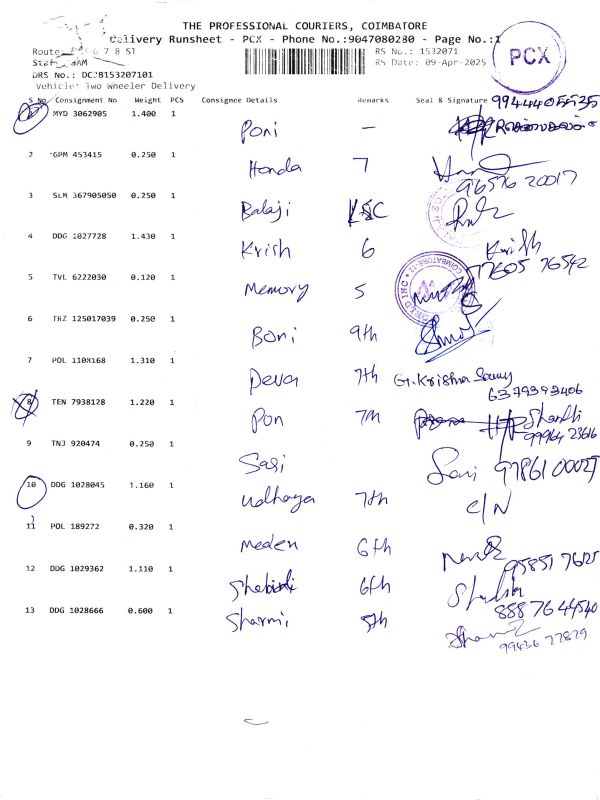 THE PROFESSIONAL COURIERS, COIMBATORE
Delivery Runsheet - PCX - Phone No.:9047080280 - Page No.:1
Route 6 7 8 ST RS No.: 1532071
RS Date: 09-Apr-2025
DRS No.: DCJB153207101
Vehicle: Two Wheeler Delivery
PCX
S No Consignment No Weight PCS Consignee Details Remarks Seal & Signature
MYD 3062905 1.400 1 Poni - 9944405535
2 GPM 453415 0.250 1 Honda 7 96576 20017
3 SLM 367905050 0.250 1 Balaji
4 DDG 1027728 1.430 1 Krish 6 Krish 77605 76542
5 TVL 6222030 0.120 1 Memory 5
6 TRZ 125017039 0.250 1 Boni 9th
7 POL 1108168 1.310 1 Deva 7th G.Krishna Samy 6379393406
8 TEN 7938128 1.220 1 Pon 7th 99964 23616
9 TNJ 920474 0.250 1 Sasi 97861 00027
10 DDG 1028045 1.160 1 Udhaya 7th C/N
11 POL 189272 0.320 1 Meden 6th 95851 76125
12 DDG 1029362 1.110 1 6th 88876 44540
13 DDG 1028666 0.600 1 Sharmi 5th 99436 77829